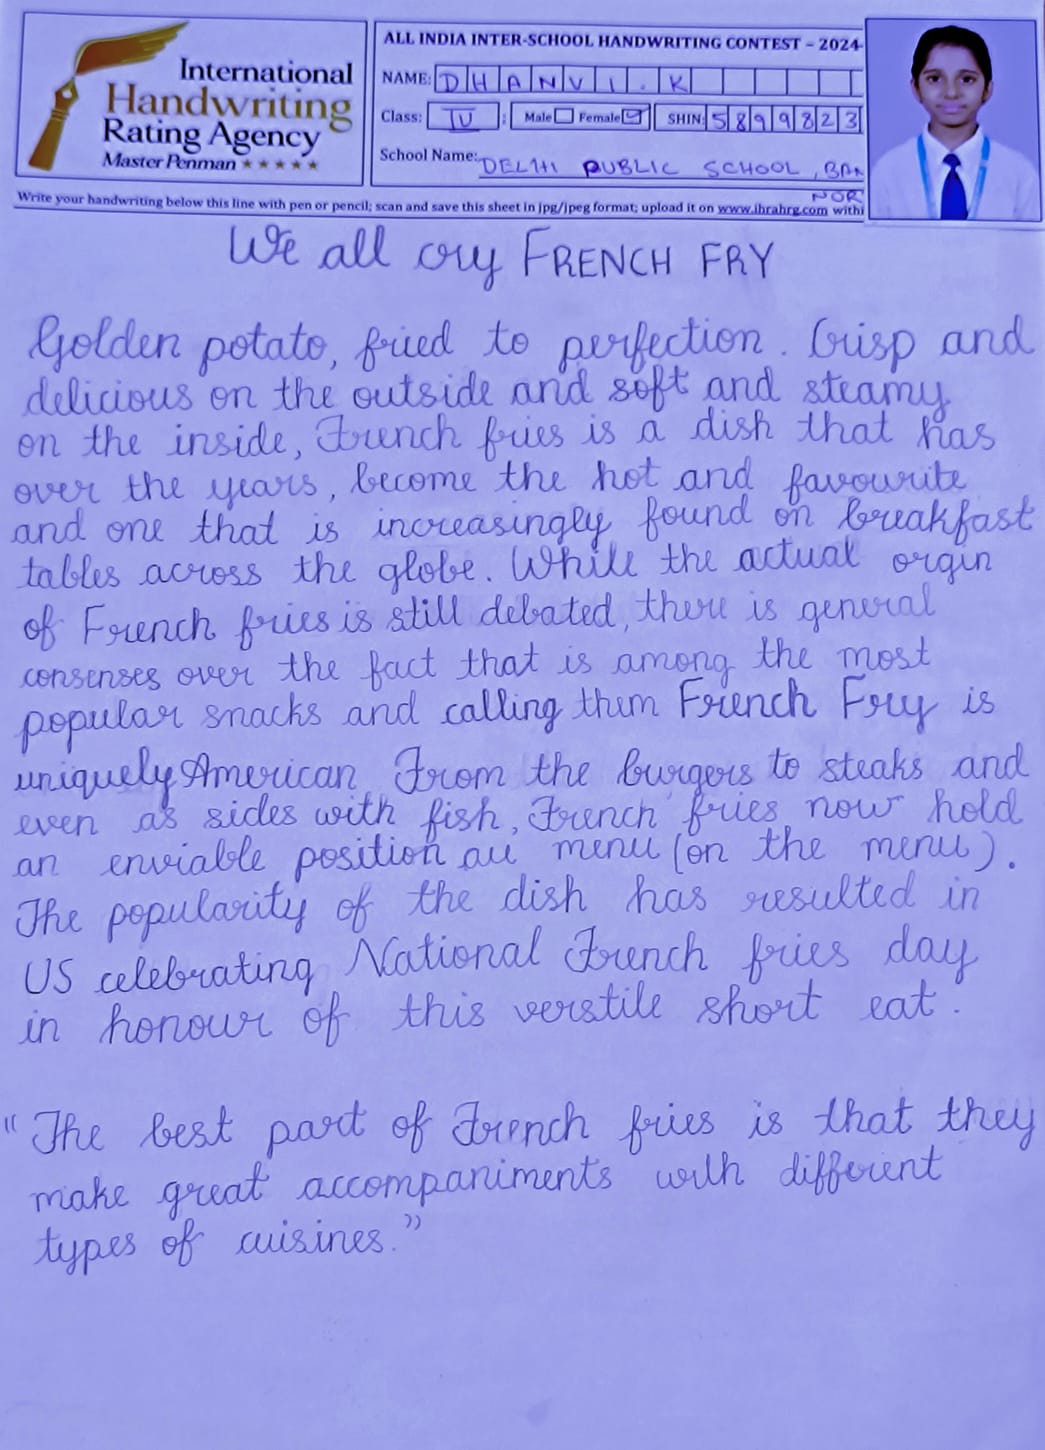 International
Handwriting
Rating Agency
Master Penman ★★★★★
ALL INDIA INTER-SCHOOL HANDWRITING CONTEST – 2024-
NAME: DHANVI.K
Class: IV ; Male Female SHIN: 5899823
School Name: DELHI PUBLIC SCHOOL, BAN
NOR
Write your handwriting below this line with pen or pencil; scan and save this sheet in jpg/jpeg format; upload it on www.ihrahrg.com withi
We all cry FRENCH FRY
Golden potato, fried to perfection. Crisp and
delicious on the outside and soft and steamy
on the inside, French fries is a dish that has
over the years, become the hot and favourite
and one that is increasingly found on breakfast
tables across the globe. While the actual orgin
of French fries is still debated, there is general
consenses over the fact that is among the most
popular snacks and calling them French Fry is
uniquely American From the burgers to steaks and
even as sides with fish, French fries now hold
an enviable position au menu (on the menu).
The popularity of the dish has resulted in
US celebrating National French fries day
in honour of this verstile short eat.
"The best part of French fries is that they
make great accompaniments with different
types of cuisines."